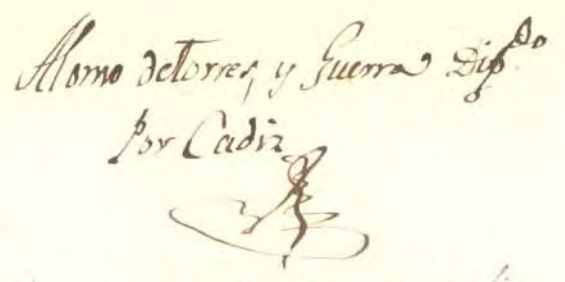 Alonso deTorres, y Guerra Dip.do
Por Cadiz